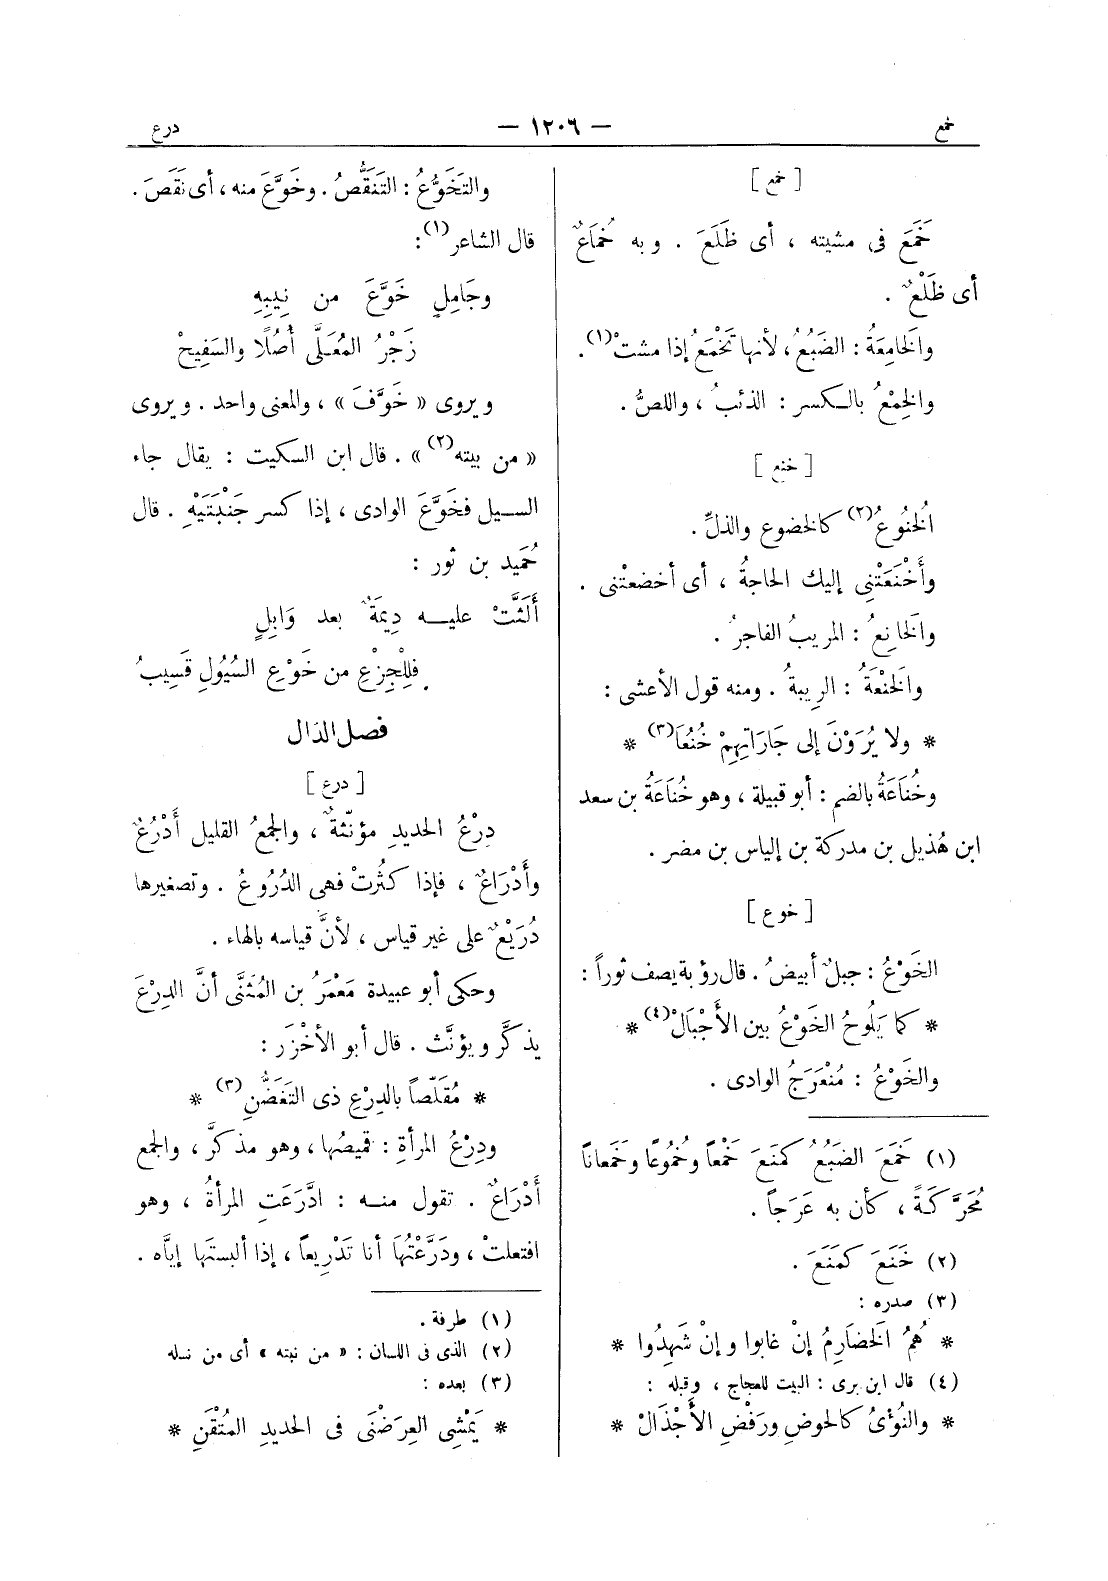 خمع
— ١٢٠٦ —
درع
[ خمع ]
خَمَعَ فى مشيته ، أى ظَلَعَ . وبه خُمَاعٌ
أى ظَلْعٌ .
والخَامِعَةُ : الضَبُعُ ، لأنها تَخْمَعُ إذا مشتْ (١) .
والخِمْعُ بالكسر : الذئبُ ، واللصُّ .
[ خنع ]
الخُنُوعُ (٢) كالخضوع والذلِّ .
وأَخْنَعَتْنِى إليك الحاجةُ ، أى أخضعتْنى .
والخَانِعُ : المريبُ الفاجرُ .
والخَنْعَةُ : الريبةُ . ومنه قول الأعشى :
* ولا يُرَوْنَ إلى جَارَاتِهِمْ خُنُعَا (٣) *
وخُنَاعَةُ بالضم : أبو قبيلة ، وهو خُنَاعَةُ بن سعد
ابن هُذيل بن مدركة بن إلياس بن مضر .
[ خوع ]
الخَوْعُ : جبلٌ أبيضُ . قال رؤبة يصف ثوراً :
* كما يَلُوحُ الخَوْعُ بين الأَجْبَالْ (٤) *
والخَوْعُ : مُنْعَرَجُ الوادى .
(١) خَمَعَ الضَبُعُ كَمَنَعَ خَمْعاً وخُمُوعًا وخَمَعانًا
مُحَرَّكَةً ، كأن به عَرَجاً .
(٢) خَنَعَ كَمَنَعَ .
(٣) صدره :
* هُمُ الخَضَارِمُ إنْ غابوا وإنْ شَهِدُوا *
(٤) قال ابن برى : البيت للعجاج ، وقبله :
* والنُؤْىُ كالحوضِ ورَفْضِ الأَجْذَالْ *
والتَخَوُّعُ : التَنَقُّصُ . وخَوَّعَ منه ، أى نَقَصَ .
قال الشاعر (١) :
وجَامِلٍ خَوَّعَ من نِيبِهِ
زَجْرُ المُعَلَّى أُصُلًا والسَفِيحْ
ويروى « خَوَّفَ » ، والمعنى واحد . ويروى
« من بيته (٢) » . قال ابن السكيت : يقال جاء
السيل فخَوَّعَ الوادى ، إذا كسر جَنْبَتَيْهِ . قال
حُمَيد بن ثور :
أَلَثَّتْ عليه دِيمَةٌ بعد وَابِلٍ
فللِجِزْعِ من خَوْعِ السُيُولِ قَسِيبُ
فصل الدال
[ درع ]
دِرْعُ الحديدِ مؤنّثةٌ ، والجمعُ القليل أَدْرُعٌ
وأَدْرَاعٌ ، فإذا كثُرتْ فهى الدُرُوعُ . وتصغيرها
دُرَيْعٌ على غير قياس ، لأنَّ قياسه بالهاء .
وحكى أبو عبيدة مَعْمَرُ بن المُثَنَّى أنَّ الدِرْعَ
يذكَّر ويؤنَّث . قال أبو الأَخْزَر :
* مُقَلَّصاً بالدِرْعِ ذى التَغَضُّنِ (٣) *
ودِرْعُ المرأةِ : قميصُها ، وهو مذكرٌ ، والجمع
أَدْرَاعٌ . تقول منه : ادَّرَعَتِ المرأةُ ، وهو
افتعلتْ ، ودَرَّعْتُهَا أنا تَدْرِيعاً ، إذا ألبستَها إيَّاه .
(١) طرفة .
(٢) الذى فى اللسان : « من نبته » أى من نسله
(٣) بعده :
* يَمْشِى العِرَضْنَى فى الحديدِ المُتْقَنِ *